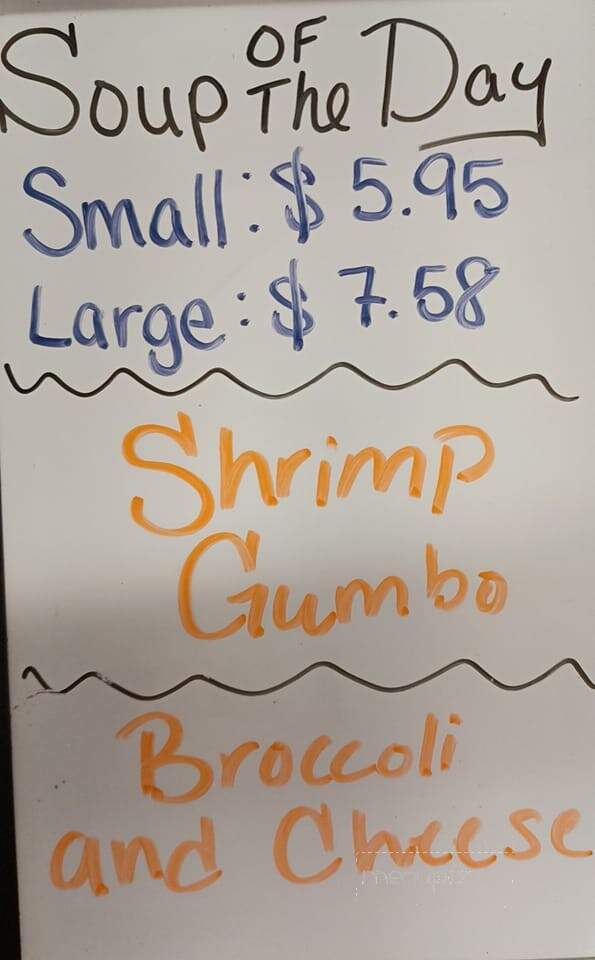 Soup OF The Day
Small: $ 5.95
Large: $ 7.58
Shrimp
Gumbo
Broccoli
and Cheese